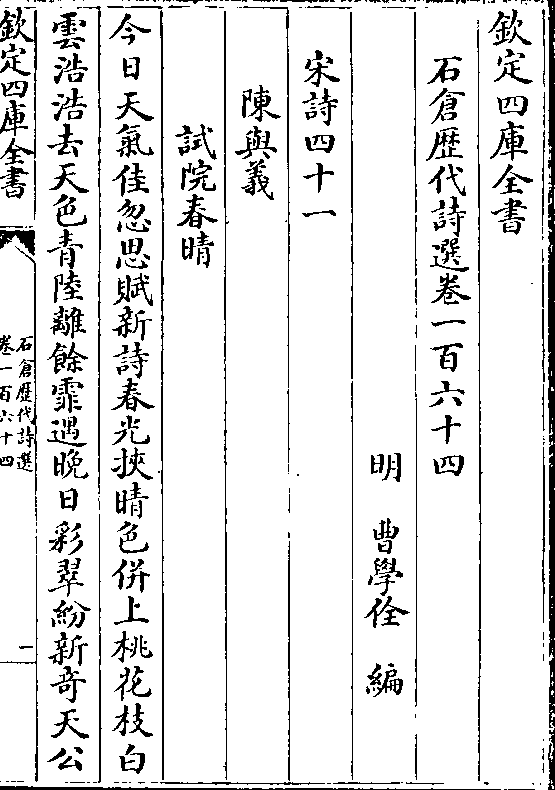 欽定四庫全書
石倉歷代詩選卷一百六十四
明　曹學佺　編
宋詩四十一
陳與義
試院春晴
今日天氣佳忽思賦新詩春光挾晴色併上桃花枝白
雲浩浩去天色青陸離餘霏遇晚日彩翠紛新奇天公
欽定四庫全書
石倉歷代詩選
卷一百六十四
一